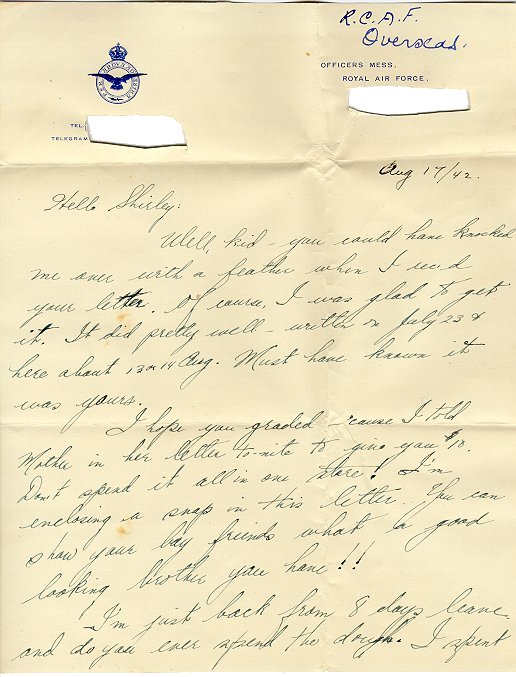 R.C.A.F.
Overseas.
OFFICERS MESS.
ROYAL AIR FORCE.
TEL.
TELEGRAM
Aug 17/42.
Hello Shirley:
Well, kid - you could have knocked
me over with a feather when I rec'd
your letter. Of course, I was glad to get
it. It did pretty well - written on July 23 &
here about 13 or 14 Aug. Must have known it
was yours.
I hope you graded - 'cause I told
Mother in her letter to-nite to give you $10.
Don't spend it all in one store! I'm
enclosing a snap in this letter. You can
show your boy friends what a good
looking brother you have!!
I'm just back from 8 days leave
and do you ever spend the dough. I spent